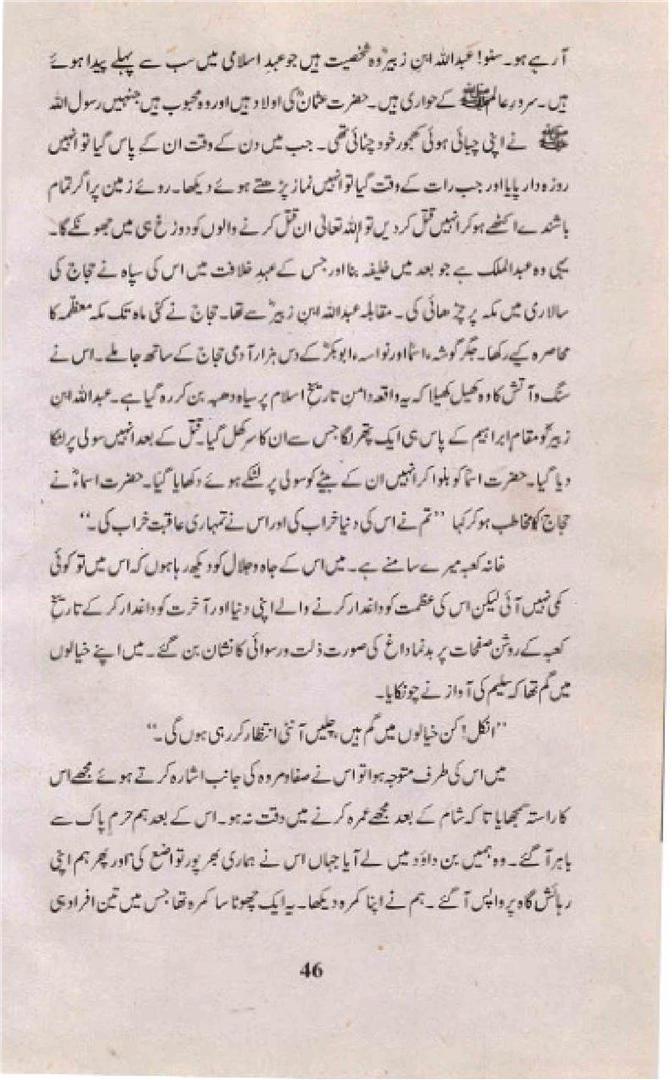 آرہے ہو۔ سنو! عبداللہ ابنِ زبیرؓ وہ شخصیت ہیں جو عہدِ اسلامی میں سب سے پہلے پیدا ہوئے
ہیں۔ سرورِ عالم ﷺ کے حواری ہیں۔ حضرت عثمانؓ کی اولاد ہیں اور وہ محبوب ہیں جنہیں رسول اللہ
ﷺ نے اپنی چبائی ہوئی کھجور خود چٹائی تھی۔ جب میں دن کے وقت ان کے پاس گیا تو انہیں
روزہ دار پایا اور جب رات کے وقت گیا تو انہیں نماز پڑھتے ہوئے دیکھا۔ روئے زمین پر اگر تمام
باشندے اکٹھے ہو کر انہیں قتل کر دیں تو اللہ تعالیٰ ان قتل کرنے والوں کو دوزخ ہی میں جھونکے گا۔
یہی وہ عبدالملک ہے جو بعد میں خلیفہ بنا اور جس کے عہدِ خلافت میں اس کی سپاہ نے حجاج کی
سالاری میں مکہ پر چڑھائی کی۔ مقابلہ عبداللہ ابنِ زبیرؓ سے تھا۔ حجاج نے کئی ماہ تک مکہ معظمہ کا
محاصرہ کیے رکھا۔ جگر گوشہء اسماؓ اور نواسہء ابوبکرؓ کے دس ہزار آدمی حجاج کے ساتھ جا ملے۔ اس نے
سنگ و آتش کا وہ کھیل کھیلا کہ یہ واقعہ دامنِ تاریخِ اسلام پر سیاہ دھبہ بن کر رہ گیا ہے۔ عبداللہ ابن
زبیرؓ کو مقام ابراہیم کے پاس ہی ایک پتھر لگا جس سے ان کا سر کھل گیا۔ قتل کے بعد انہیں سولی پر لٹکا
دیا گیا۔ حضرت اسماؓ کو بلوا کر انہیں ان کے بیٹے کو سولی پر لٹکے ہوئے دکھایا گیا۔ حضرت اسماءؓ نے
حجاج کا مخاطب ہو کر کہا ”تم نے اس کی دنیا خراب کی اور اس نے تمہاری عاقبت خراب کی۔“
خانہ کعبہ میرے سامنے ہے۔ میں اس کے جاہ و جلال کو دیکھ رہا ہوں کہ اس میں تو کوئی
کمی نہیں آئی لیکن اس کی عظمت کو داغدار کرنے والے اپنی دنیا اور آخرت کو داغدار کر کے تاریخِ
کعبہ کے روشن صفحات پر بدنما داغ کی صورت ذلت و رسوائی کا نشان بن گئے۔ میں اپنے خیالوں
میں گم تھا کہ سلیم کی آواز نے چونکایا۔
”انکل! کن خیالوں میں گم ہیں، چلیں آنٹی انتظار کر رہی ہوں گی۔“
میں اس کی طرف متوجہ ہوا تو اس نے صفا و مروہ کی جانب اشارہ کرتے ہوئے مجھے اس
کا راستہ سمجھایا تا کہ شام کے بعد مجھے عمرہ کرنے میں دقت نہ ہو۔ اس کے بعد ہم حرم پاک سے
باہر آ گئے۔ وہ ہمیں بن داؤد میں لے آیا جہاں اس نے ہماری بھرپور تواضع کی اور پھر ہم اپنی
رہائش گاہ پر واپس آ گئے۔ ہم نے اپنا کمرہ دیکھا۔ یہ ایک چھوٹا سا کمرہ تھا جس میں تین افراد ہی
46